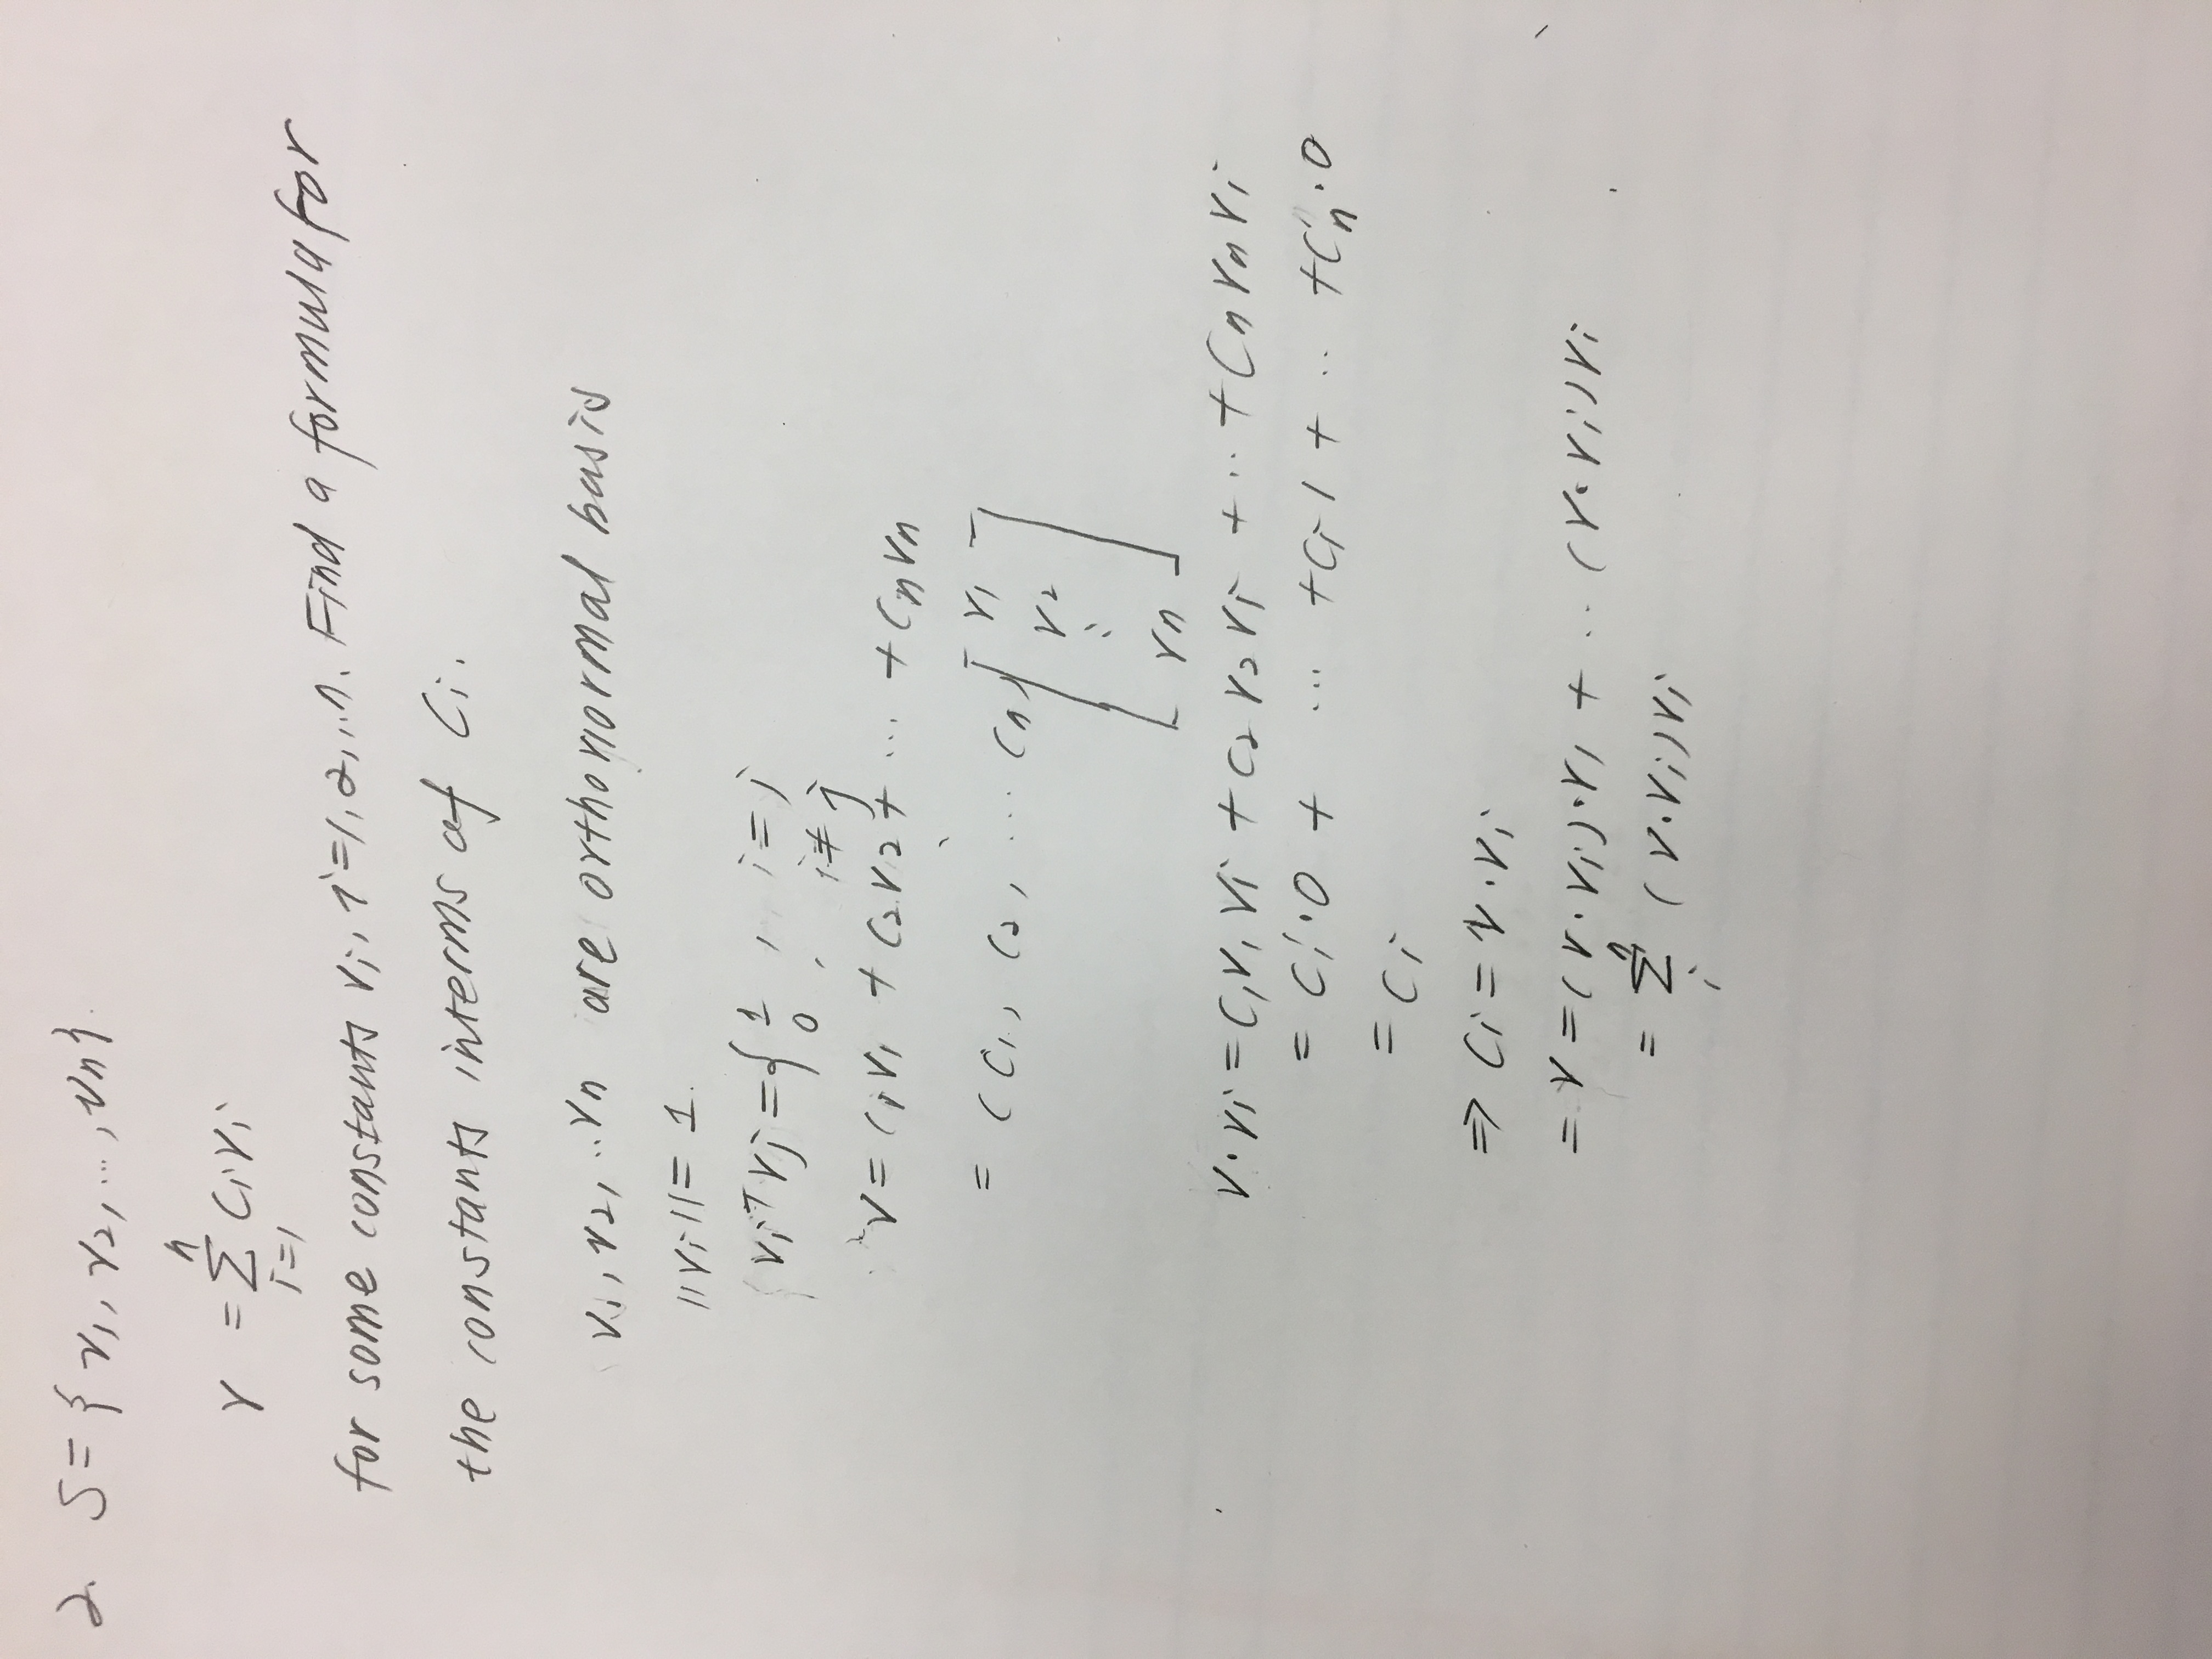 2. S = { v1, v2, ..., vn }.
n
v = Σ ci vi
i=1
for some constants vi, i=1,2,..n. Find a formula for
the constants interms of Ci.
v1, v2, ..vn are orthonormal basis
||vi|| = 1.
viᵀ vj = { 1 , i = j
0 , i ≠ j
v = c1v1 + c2v2 + ... + cnvn
= (c1, c2, ... cn) [ v1
v2
⋮
vn ]
v·vi = c1v1vi + c2v2vi + .. + cnvnvi
= c1·0 + ... + ci1 + .. + cn·0
= ci
⇒ ci = v·vi
= v = (v·vi)·v1 + .. (v·vi)vi
n
= Σ (v·vi)vi
i